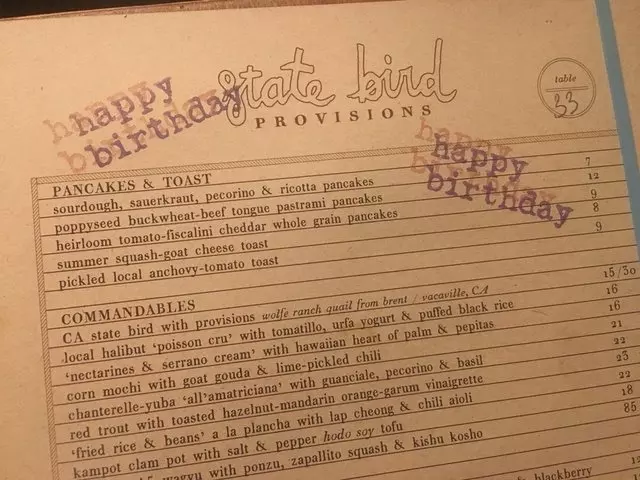 happy birthday
state bird
PROVISIONS
table
33
happy birthday
PANCAKES & TOAST
sourdough, sauerkraut, pecorino & ricotta pancakes 7
poppyseed buckwheat-beef tongue pastrami pancakes 12
heirloom tomato-fiscalini cheddar whole grain pancakes 9
summer squash-goat cheese toast 8
pickled local anchovy-tomato toast 9
COMMANDABLES
CA state bird with provisions wolfe ranch quail from brent / vacaville, CA 15/30
local halibut 'poisson cru' with tomatillo, urfa yogurt & puffed black rice 16
'nectarines & serrano cream' with hawaiian heart of palm & pepitas 16
corn mochi with goat gouda & lime-pickled chili 21
chanterelle-yuba 'all'amatriciana' with guanciale, pecorino & basil 22
red trout with toasted hazelnut-mandarin orange-garum vinaigrette 23
'fried rice & beans' a la plancha with lap cheong & chili aioli 22
kampot clam pot with salt & pepper hodo soy tofu 18
wagyu with ponzu, zapallito squash & kishu kosho 85
blackberry